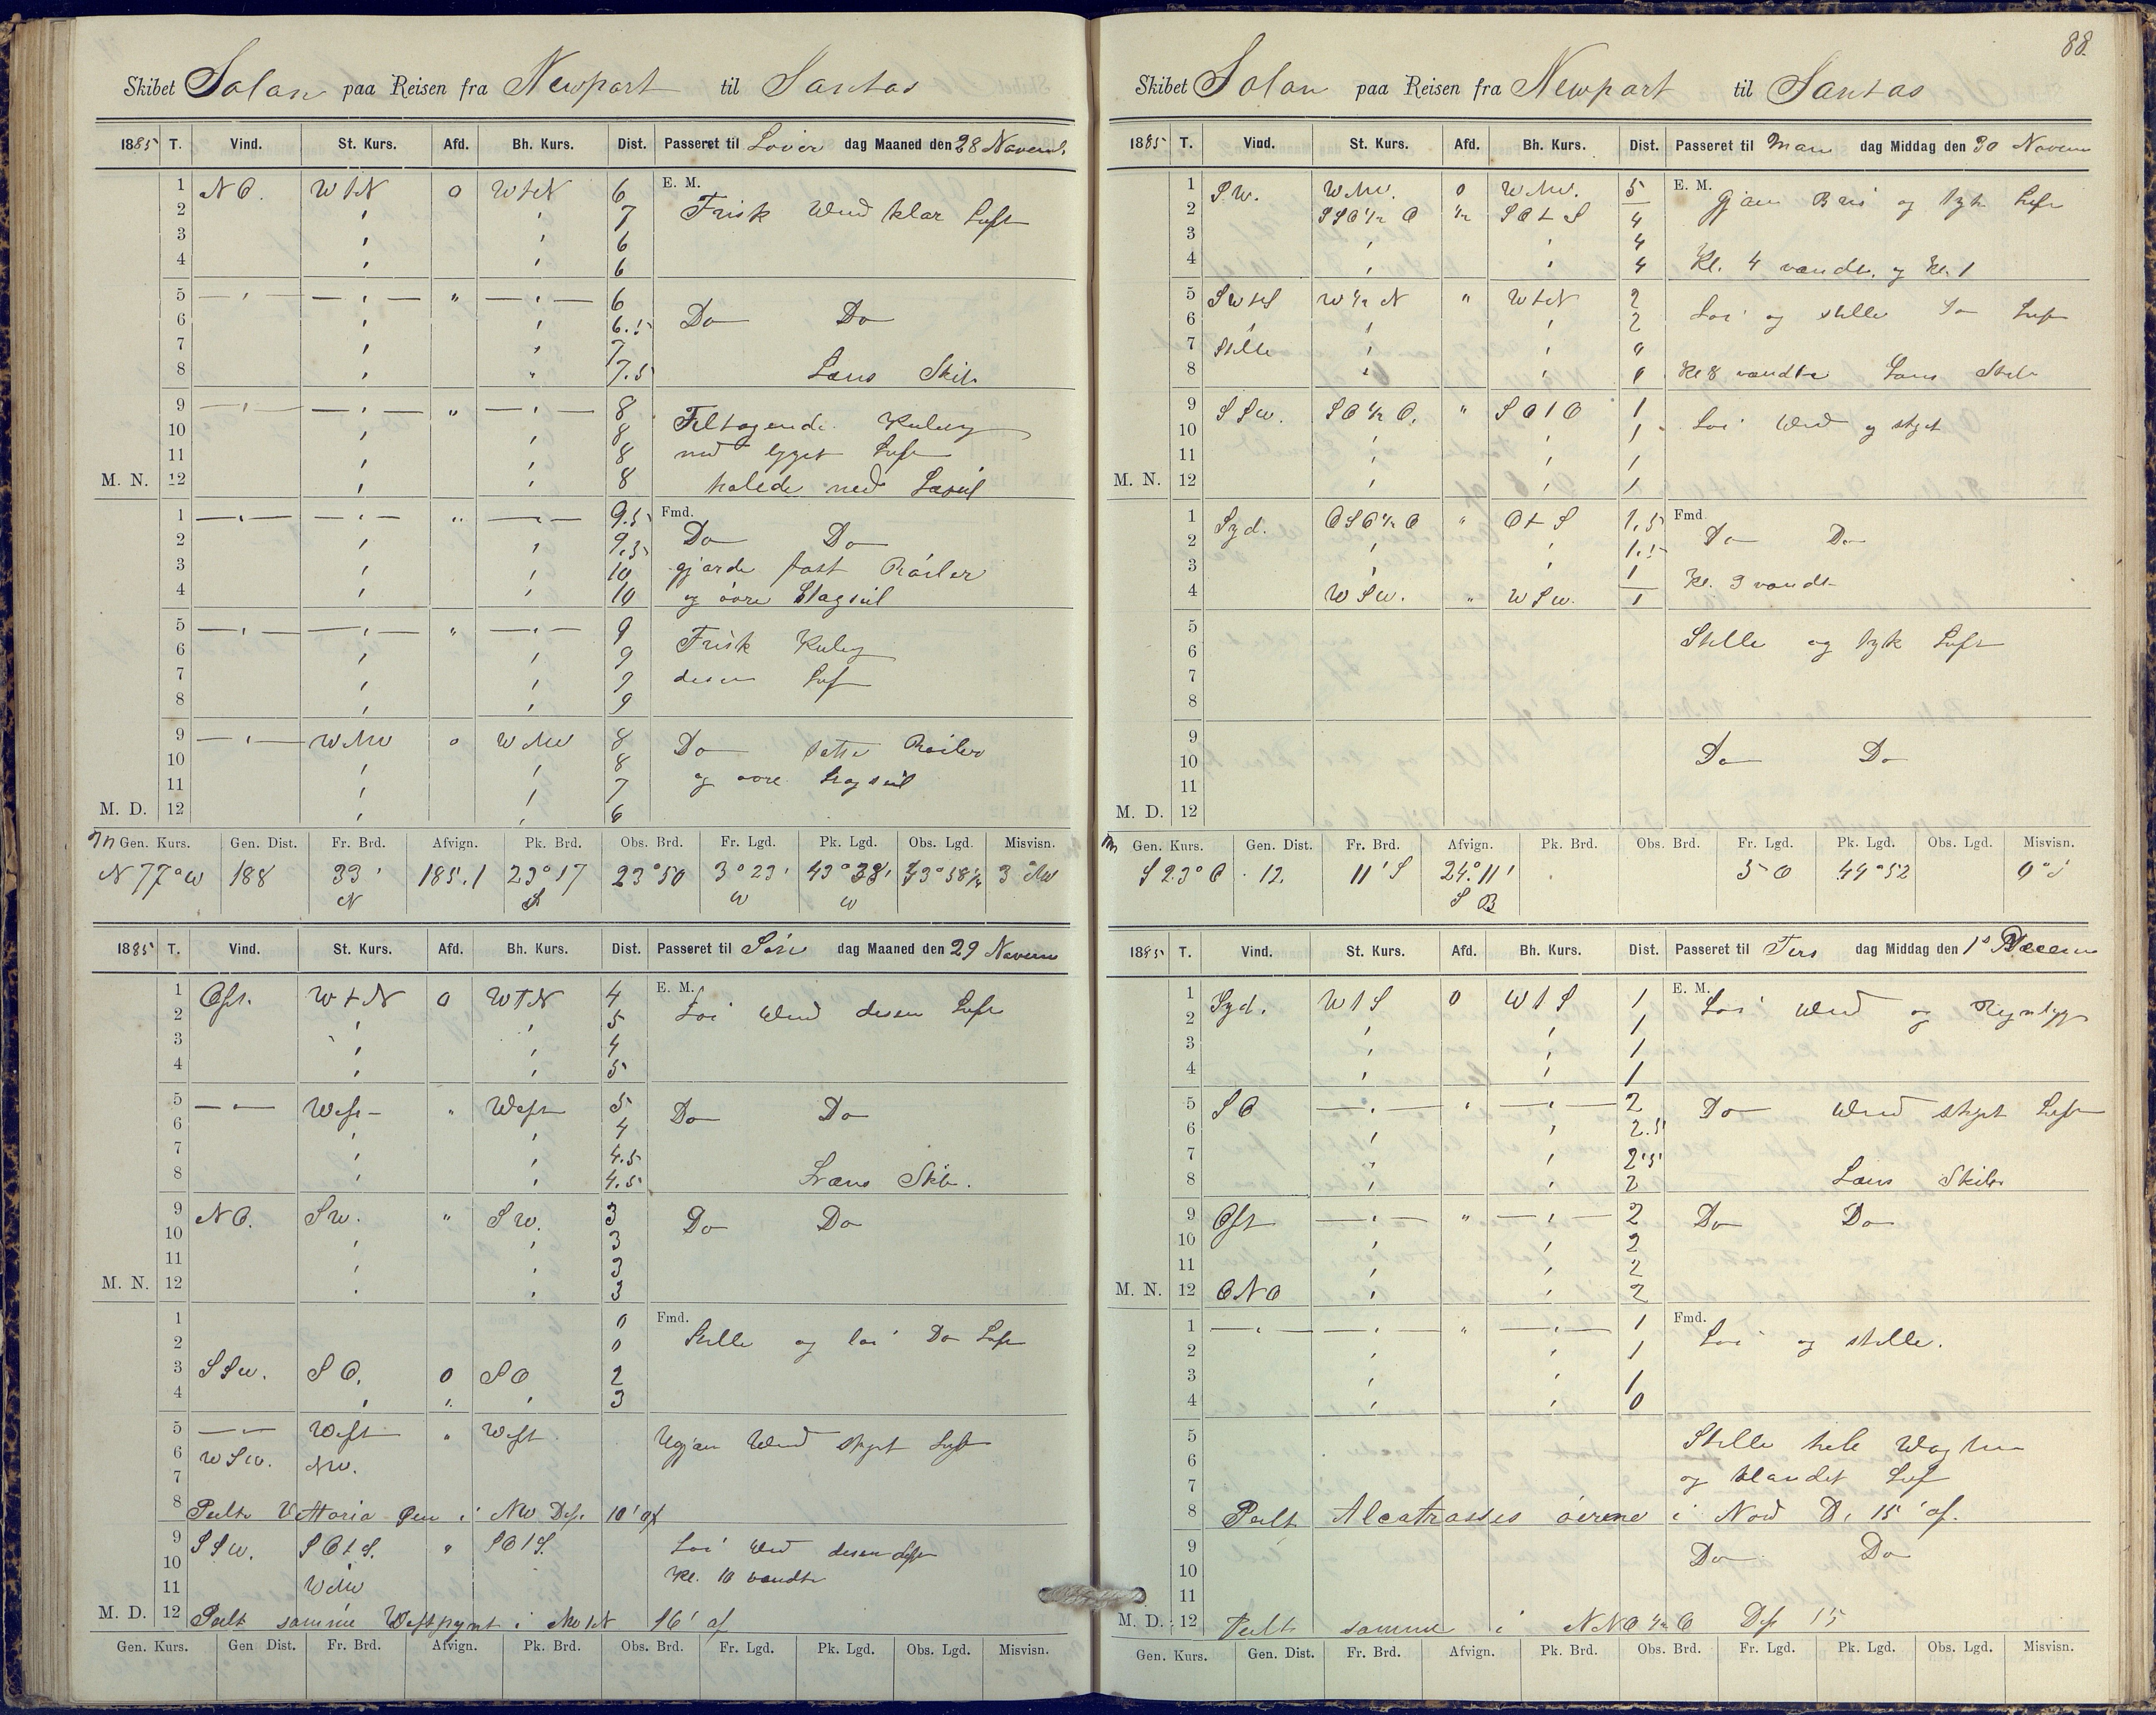 88.
Skibet Solan paa Reisen fra Newport til Santos
1885 T. Vind. St. Kurs. Afd. Bh. Kurs. Dist. Passeret til Löver dag Maaned den 28 Novemb.
1 NO. WtN 0 WtN 6 E. M.
2 " " 7 Frisk Wind klar Luft
3 " " 6
4 " " 6
5 — " — — " — " — " — 6
6 " " 6.5 Do Do
7 " " 7
8 " " 7.5 Læns Skib
9 — " — — " — " — " — 8 Tiltagende Kuling
10 " " 8
11 " " 8 med byget Luft
M. N. 12 " " 8 halede ned Læseil
1 — " — — " — " — " — 9.5 Fmd.
2 " " 9.5 Do Do
3 " " 10 gjorde fast Röiler
4 " " 10 og övre Stagseil
5 — " — — " — " — " — 9
6 " " 9 Frisk Kuling
7 " " 9 disen Luft
8 " " 9
9 — " — WNW 0 WNW 8
10 " " 8 Do satte Röiler
11 " " 7 og övre Stagseil
M. D. 12 " " 6
Gen. Kurs. Gen. Dist. Fr. Brd. Afvign. Pk. Brd. Obs. Brd. Fr. Lgd. Pk. Lgd. Obs. Lgd. Misvisn.
N 77° W 188 33' 185.1 23° 17 23° 50 3° 23' 43° 38' 43° 58 3° NW
N S W W
1885 T. Vind. St. Kurs. Afd. Bh. Kurs. Dist. Passeret til Sön dag Maaned den 29 Novem
1 Ost. WtN 0 WtN 4 E. M.
2 " " 5 Löi Wind disen Luft
3 " " 4
4 " " 5
5 — " — West " West 5
6 " " 4 Do Do
7 " " 4.5
8 " " 4.5 Læns Skib.
9 NO. SW. " SW. 3
10 " " 3 Do Do
11 " " 3
M. N. 12 " " 3
1 0 Fmd.
2 0 Stille og löi Do Luft
3 SSW. SO. 0 SO 2
4 " " " 3
5 — " — West " West
6 WSW. NW. Ugjæn Wind skyet Luft
7
8 Peilte Vittoria Öen i NW Dist. 10' af
9 SSW. SOtS. " SOtS. Löi Wind disen Luft
10 Kl. 10 vendte
11 WNW
M. D. 12 Peilt samme Westpynt i NWtN 16' af
Gen. Kurs. Gen Dist. Fr. Brd. Afvign. Pk. Brd. Obs. Brd. Fr. Lgd. Pk. Lgd. Obs. Lgd. Misvisn.
Skibet Solan paa Reisen fra Newport til Santos
1885 T. Vind. St. Kurs. Afd. Bh. Kurs. Dist. Passeret til Man dag Middag den 30 Novem
1 SW. WNW. 0 WNW. 5 E. M.
2 SSO ½ O ½ SOtS 4 Bris og tyk Luft
3 " " 4
4 " " 4 Kl. 4 vendte og Kl. 1
5 SWtS W ½ N " WtN 2
6 " " 2 Löi og stille Do Luft
7 Stille " " 0
8 " " 0 Kl 8 vendte Læns Skib
9 SSW. SO ½ O. " SOtO 1
10 " " 1 Löi Wind og skyet
11 " " 1
M. N. 12 " " 1
1 Syd. OSO ½ O " OtS 1.5 Fmd
2 " " 1.5 Do Do
3 " " 1 Kl. 3 vendt
4 WSW. " WSW. 1
5
6 Stille og tyk Luft
7
8
9
10 Do Do
11
M. D. 12
Gen. Kurs. Gen. Dist. Fr. Brd. Afvign. Pk. Brd. Obs. Brd. Fr. Lgd. Pk. Lgd. Obs. Lgd. Misvisn.
S 23° O 12. 11' S 24° 11' 5 O 44° 52
S B
1885 T. Vind. St. Kurs. Afd. Bh. Kurs. Dist. Passeret til Tirs dag Middag den 1s Decem
1 Syd. WtS 0 WtS 1 E. M.
2 " " 1 Löi Wind og Regnbyge
3 " " 1
4 " " 1
5 SO — " — " — " — 2
6 " " 2.5 Do Wind skyet Luft
7 " " 2.5
8 " " 2 Læns Skib
9 Ost — " — " — " — 2 Do Do
10 " " 2
11 " " 2
M. N. 12 ONO " " 2
1 — " — — " — " — " — 1 Fmd.
2 " " 1 Löi og stille.
3 " " 1
4 " " 0
5 Stille hele Wagten
6
7 og blandet Luft
8 Peilt Alcatrasses öerene i Nord D. 15' af.
9 Do Do
10
11
M. D. 12 Peilt samme i NNO ½ O Dist 15
Gen. Kurs. Gen. Dist. Fr. Brd. Afvign. Pk. Brd. Obs. Brd. Fr. Lgd. Pk. Lgd. Obs. Lgd. Misvisn.